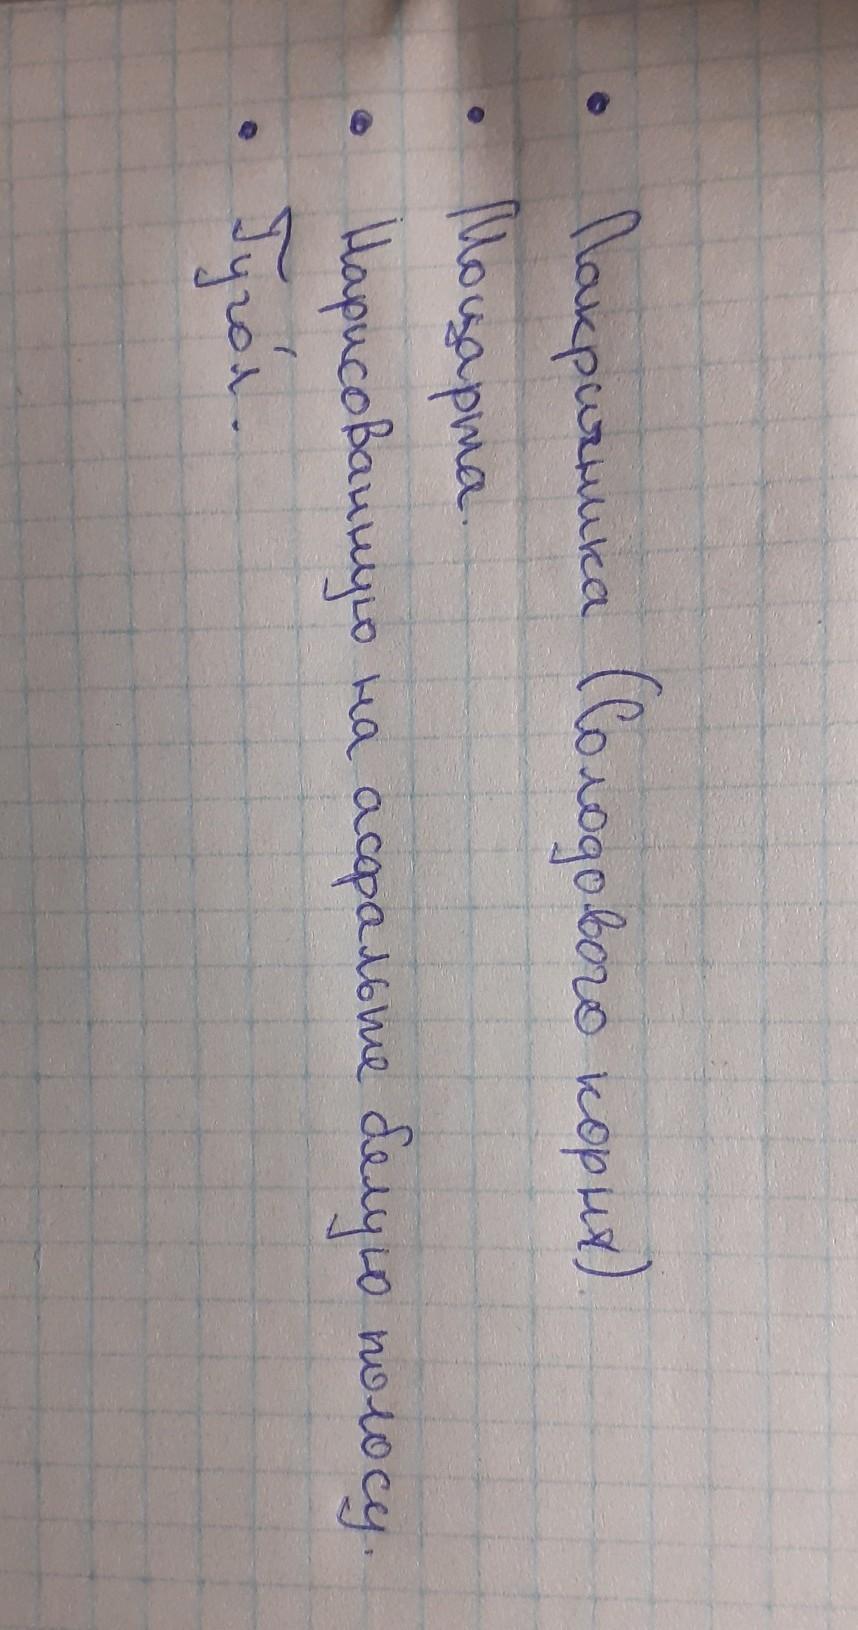 • Лакричника (Солодового корня)
• Моцарта.
• Нарисованную на асфальте белую полосу.
• Гуго́л.